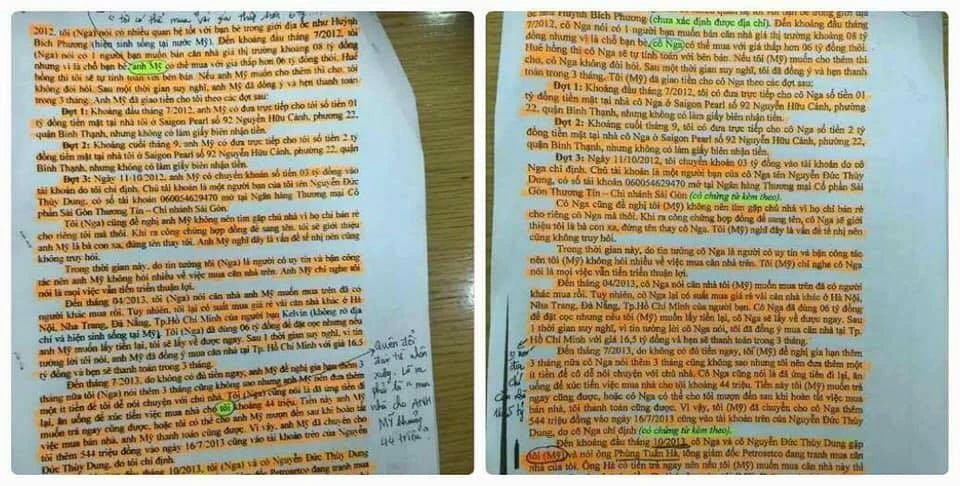 ô tôi có thể mua
2012, tôi (Nga) nói có nhiều quan hệ tốt với bạn bè trong giới địa ốc như Huỳnh
Bích Phương (hiện sinh sống tại nước Mỹ). Đến khoảng đầu tháng 7/2012, tôi
(Nga) nói có 1 người bạn muốn bán căn nhà giá thị trường khoảng 08 tỷ đồng
nhưng vì là chỗ bạn bè, anh Mỹ có thể mua với giá thấp hơn 06 tỷ đồng thôi. Huê
hồng thì tôi sẽ tự tính toán với bên bán. Nếu anh Mỹ muốn cho thêm thì cho, tôi
không đòi hỏi. Sau một thời gian suy nghĩ, anh Mỹ đã đồng ý và hẹn thanh toán
trong 3 tháng. Anh Mỹ đã giao tiền cho tôi theo các đợt sau:
Đợt 1: Khoảng đầu tháng 7/2012, anh Mỹ có đưa trực tiếp cho tôi số tiền 01
tỷ đồng tiền mặt tại nhà tôi ở Saigon Pearl số 92 Nguyễn Hữu Cảnh, phường 22,
quận Bình Thạnh, nhưng không có làm giấy biên nhận tiền.
Đợt 2: Khoảng cuối tháng 9, anh Mỹ có đưa trực tiếp cho tôi số tiền 2 tỷ
đồng tiền mặt tại nhà tôi ở Saigon Pearl số 92 Nguyễn Hữu Cảnh, phường 22, quận
Bình Thạnh, nhưng không có làm giấy biên nhận tiền.
Đợt 3: Ngày 11/10/2012, anh Mỹ có chuyển khoản số tiền 03 tỷ đồng vào
tài khoản do tôi chỉ định. Chủ tài khoản là một người bạn của tôi tên Nguyễn Đức
Thùy Dung, có số tài khoản 060054629470 mở tại Ngân hàng Thương mại Cổ
phần Sài Gòn Thương Tín – Chi nhánh Sài Gòn.
Tôi (Nga) cũng đề nghị anh Mỹ không nên tìm gặp chủ nhà vì họ chỉ bán rẻ
cho riêng tôi mà thôi. Khi ra công chứng hợp đồng để sang tên, tôi sẽ giới thiệu
anh Mỹ là bà con xa, đứng tên thay tôi. Anh Mỹ nghĩ đây là vấn đề tế nhị nên cũng
không truy hỏi.
Trong thời gian này, do tin tưởng tôi (Nga) là người có uy tín và bận công
tác nên anh Mỹ không hỏi nhiều về việc mua căn nhà trên. Anh Mỹ chỉ nghe tôi
nói là mọi việc vẫn tiến triển thuận lợi.
Đến tháng 04/2013, tôi (Nga) nói căn nhà anh Mỹ muốn mua trên đã có
người khác mua rồi. Tuy nhiên, tôi lại có suất mua giá rẻ vài căn nhà khác ở Hà
Nội, Nha Trang, Đà Nẵng, Tp.Hồ Chí Minh của người bạn Kelvin (không rõ địa
chỉ và hiện sinh sống tại Mỹ). Tôi (Nga) đã dùng 06 tỷ đồng để đặt cọc nhưng nếu
anh Mỹ muốn lấy tiền lại, tôi sẽ lấy về được ngay. Sau 1 thời gian suy nghĩ, vì tin
tưởng lời tôi nói, anh Mỹ đã đồng ý mua căn nhà tại Tp. Hồ Chí Minh với giá 16,5
tỷ đồng và hẹn sẽ thanh toán trong 3 tháng.
Đến tháng 7/2013, do không có đủ tiền ngay, anh Mỹ đề nghị gia hạn thêm 3
tháng nữa tôi (Nga) nói thêm 3 tháng cũng không sao nhưng anh Mỹ nên đưa thêm
một ít tiền để tôi dễ nói chuyện với chủ nhà. Tôi (Nga) cũng nói là đã ứng tiền đi
lại, ăn uống để xúc tiến việc mua nhà cho tôi khoảng 44 triệu. Tiền này anh Mỹ
muốn trả ngay cũng được, hoặc tôi có thể cho anh Mỹ mượn đến sau khi hoàn tất
việc mua bán nhà, anh Mỹ thanh toán cũng được. Vì vậy, anh Mỹ đã chuyển cho
tôi thêm 544 triệu đồng vào ngày 16/7/2013 cũng vào tài khoản trên của Nguyễn
Đức Thùy Dung, do tôi chỉ định.
tháng 10/2013, tôi (Nga) và cô Nguyễn Đức Thùy Dung
Quên đổi
nhân
xưng. Lẽ ra
phải là: mua
nhà cho ANH
MỸ khoảng
44 triệu
ốc như Huỳnh Bích Phương (chưa xác định được địa chỉ). Đến khoảng đầu tháng
7/2012, cô Nga nói có 1 người bạn muốn bán căn nhà giá thị trường khoảng 08 tỷ
đồng nhưng vì là chỗ bạn bè, cô Nga có thể mua với giá thấp hơn 06 tỷ đồng thôi.
Huê hồng thì cô Nga sẽ tự tính toán với bên bán. Nếu tôi (Mỹ) muốn cho thêm thì
cho, cô Nga không đòi hỏi. Sau một thời gian suy nghĩ, tôi đã đồng ý và hẹn thanh
toán trong 3 tháng. Tôi (Mỹ) đã giao tiền cho cô Nga theo các đợt sau:
Đợt 1: Khoảng đầu tháng 7/2012, tôi có đưa trực tiếp cho cô Nga số tiền 01
tỷ đồng tiền mặt tại nhà cô Nga ở Saigon Pearl số 92 Nguyễn Hữu Cảnh, phường
22, quận Bình Thạnh, nhưng không có làm giấy biên nhận tiền.
Đợt 2: Khoảng cuối tháng 9, tôi có đưa trực tiếp cho cô Nga số tiền 2 tỷ
đồng tiền mặt tại nhà cô Nga ở Saigon Pearl số 92 Nguyễn Hữu Cảnh, phường 22,
quận Bình Thạnh, nhưng không có làm giấy biên nhận tiền.
Đợt 3: Ngày 11/10/2012, tôi chuyển khoản 03 tỷ đồng vào tài khoản do cô
Nga chỉ định. Chủ tài khoản là một người bạn của cô Nga tên Nguyễn Đức Thùy
Dung, có số tài khoản 060054629470 mở tại Ngân hàng Thương mại Cổ phần Sài
Gòn Thương Tín – Chi nhánh Sài Gòn (có chứng từ kèm theo).
Cô Nga cũng đề nghị tôi (Mỹ) không nên tìm gặp chủ nhà vì họ chỉ bán rẻ
cho riêng cô Nga mà thôi. Khi ra công chứng hợp đồng để sang tên, cô Nga sẽ giới
thiệu tôi là bà con xa, đứng tên thay cô Nga. Tôi (Mỹ) nghĩ đây là vấn đề tế nhị nên
cũng không truy hỏi.
Trong thời gian này, do tin tưởng cô Nga là người có uy tín và bận công tác
nên tôi (Mỹ) không hỏi nhiều về việc mua căn nhà trên. Tôi (Mỹ) chỉ nghe cô Nga
nói là mọi việc vẫn tiến triển thuận lợi.
Đến tháng 04/2013, cô Nga nói căn nhà tôi (Mỹ) muốn mua trên đã có người
khác mua rồi. Tuy nhiên, cô Nga lại có suất mua giá rẻ vài căn nhà khác ở Hà Nội,
Nha Trang, Đà Nẵng, Tp.Hồ Chí Minh của người bạn. Cô Nga đã dùng 06 tỷ đồng
để đặt cọc nhưng nếu tôi (Mỹ) muốn lấy tiền lại, cô Nga sẽ lấy về được ngay. Sau
1 thời gian suy nghĩ, vì tin tưởng lời cô Nga nói, tôi đã đồng ý mua căn nhà tại Tp.
Hồ Chí Minh với giá 16,5 tỷ đồng và hẹn sẽ thanh toán trong 3 tháng.
Đến tháng 7/2013, do không có đủ tiền ngay, tôi (Mỹ) đề nghị gia hạn thêm
3 tháng nữa cô Nga nói thêm 3 tháng cũng không sao nhưng tôi nên đưa thêm một
ít tiền để cô dễ nói chuyện với chủ nhà. Cô Nga cũng nói là đã ứng tiền đi lại, ăn
uống để xúc tiến việc mua nhà cho tôi khoảng 44 triệu. Tiền này tôi (Mỹ) muốn trả
ngay cũng được, hoặc cô Nga có thể cho tôi mượn đến sau khi hoàn tất việc mua
bán nhà, tôi thanh toán cũng được. Vì vậy, tôi (Mỹ) đã chuyển cho cô Nga thêm
544 triệu đồng vào ngày 16/7/2013 cũng vào tài khoản trên của Nguyễn Đức Thùy
Dung, do cô Nga chỉ định (có chứng từ kèm theo).
Đến khoảng đầu tháng 10/2013, cô Nga và cô Nguyễn Đức Thùy Dung gặp
tôi (Mỹ) và nói ông Phùng Tuấn Hà, tổng giám đốc Petrosetco đang tranh mua
căn nhà của tôi. Ông Hà có tiền trả ngay nên nếu tôi (Mỹ) muốn mua căn nhà này thì